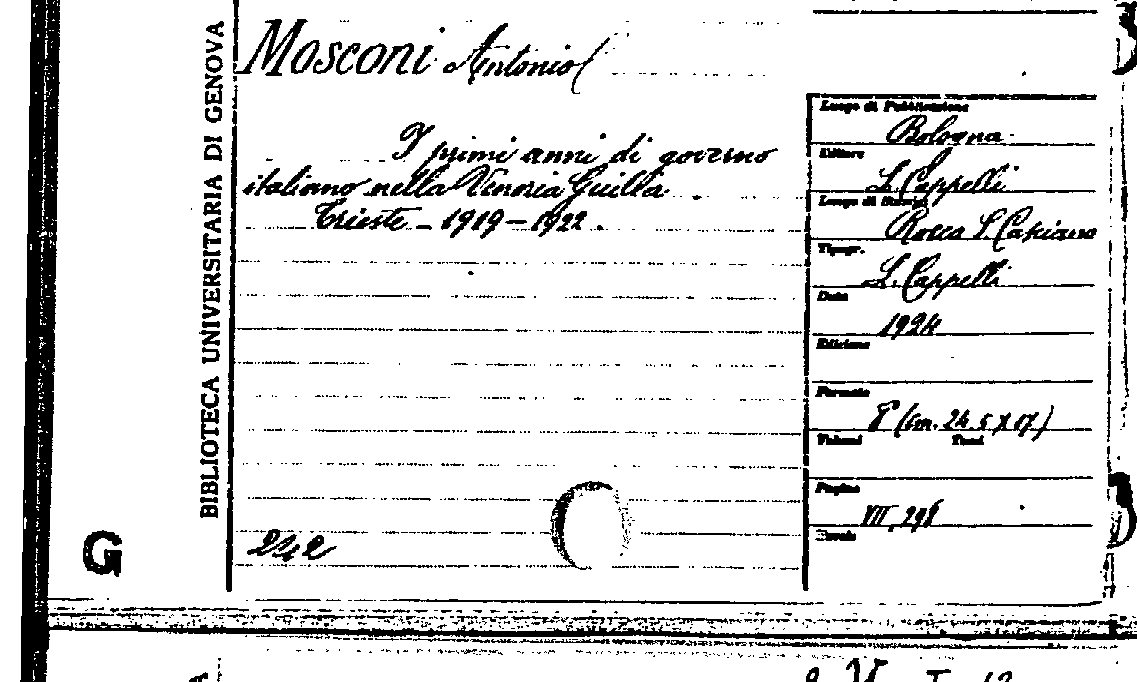 BIBLIOTECA UNIVERSITARIA DI GENOVA
Mosconi Antonio
I primi anni di governo
italiano nella Venezia Giulia
Trieste - 1919-1922.
242
G
Luogo di Pubblicazione
Bologna
Editore
L. Cappelli
Luogo di Stampa
Rocca S. Casciano
Tipogr.
L. Cappelli
Data
1924
Edizione
Formato
8° (cm. 24.5 X 17)
Volumi Tomi
Pagine
VII, 298
Tavole